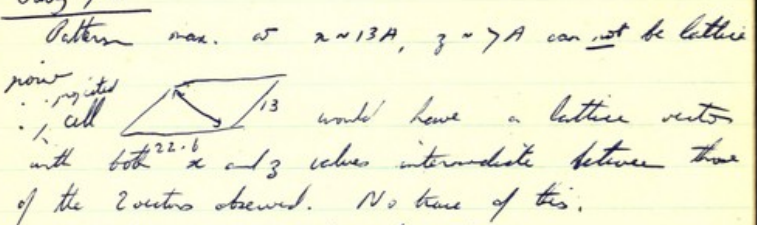 Patterson max. at x ~ 13A, z ~ 7A can not be lattice
point
∴ projected
cell 13 would have a lattice vector
22.6
with both x and z values intermediate between those
of the 2 vectors observed. No trace of this.